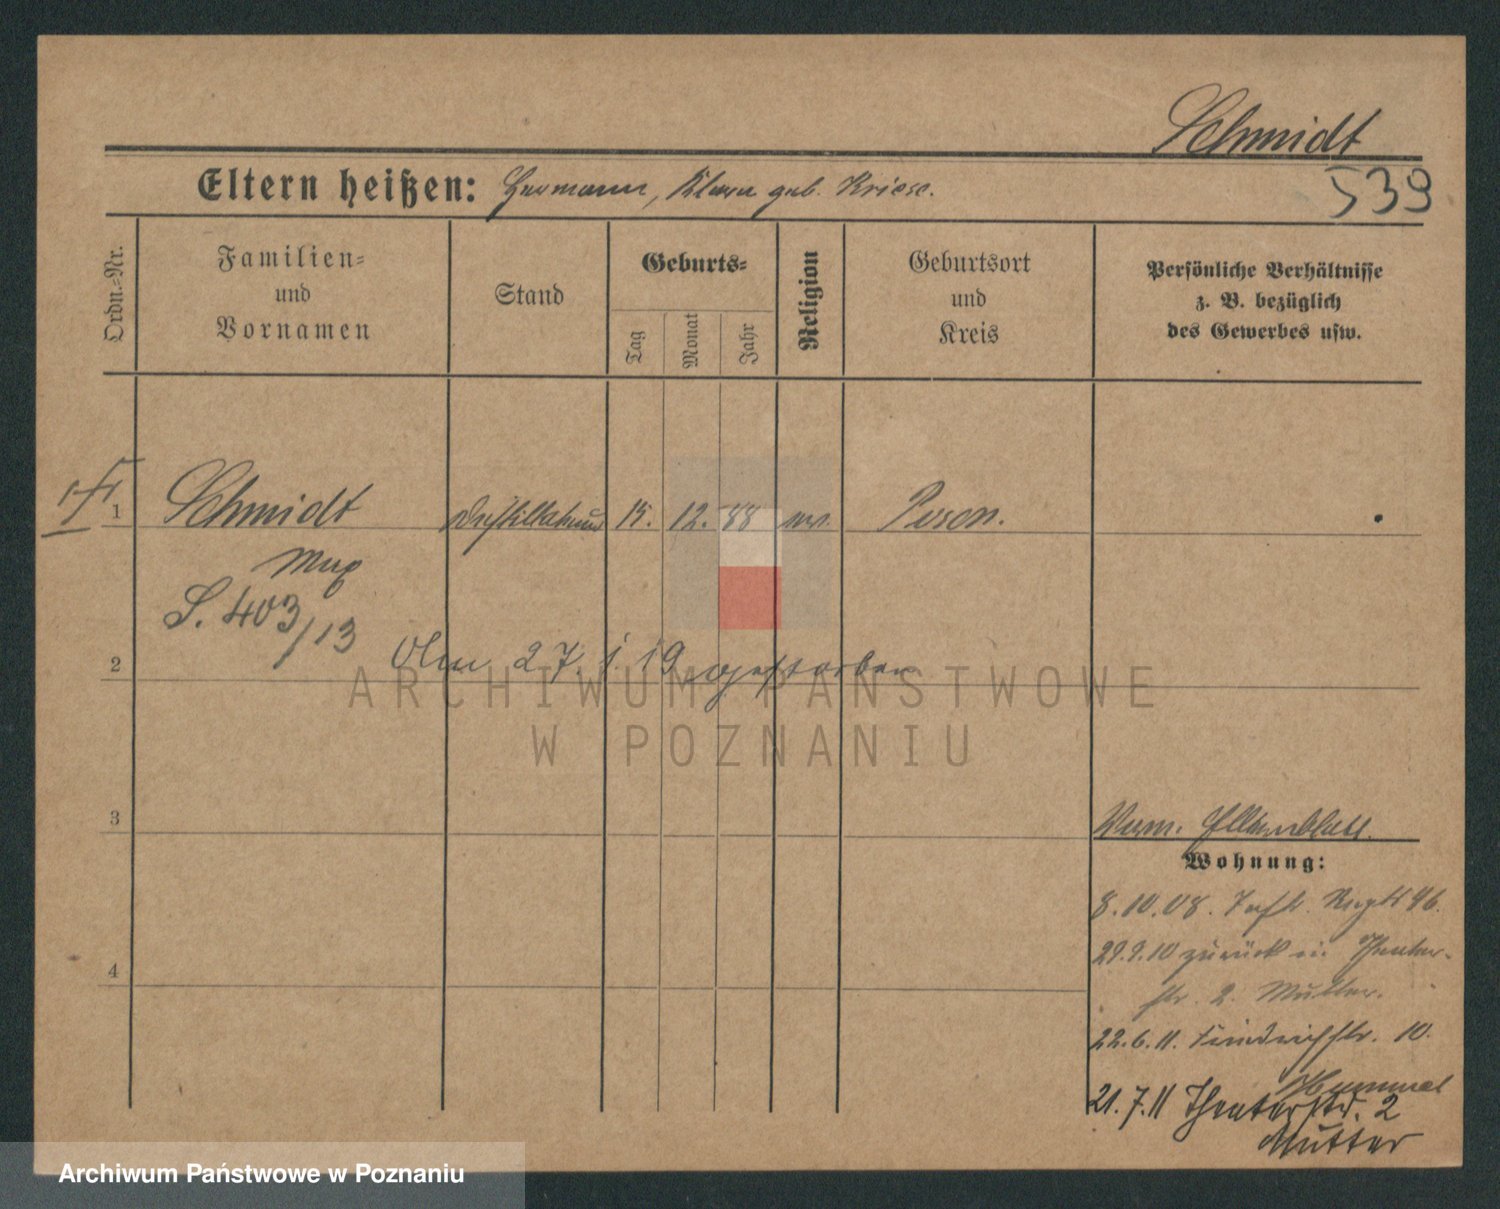 Schmidt
Eltern heißen: Hermann, Klara geb. Kriese.
539
Ordn.-Nr.
Familien-
und
Vornamen
Stand
Geburts-
Tag
Monat
Jahr
Religion
Geburtsort
und
Kreis
Persönliche Verhältnisse
z. B. bezüglich
des Gewerbes usw.
1 Schmidt 15. 12. 88 Posen.
Max
S. 403/13
2 Am 27. 1. 19 gestorben
ARCHIWUM PAŃSTWOWE
W POZNANIU
3
Wohnung:
8.10.08. Inftr. Regt 46.
29.9.10 zurück in Theater-
4
str. 2. Mutter.
22.6.11. 10.
Hummel
21.7.11 Theaterstr. 2
Mutter
Archiwum Państwowe w Poznaniu